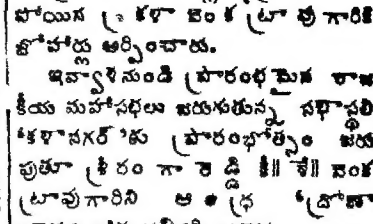 పోయిన శ్రీ కళా వెంకట్రావు గారికి
జోహార్లు అర్పించారు.
ఇవ్వాళనుండి ప్రారంభమైన రాజ
కీయ మహాసభలు జరుగుతున్న సభాస్థలి
'కళానగర్'కు ప్రారంభోత్సం జరు
పుతూ శ్రీ రంగారెడ్డి కీ॥ శే॥ వెంక
ట్రావుగారిని ఆంధ్ర 'ద్రోణా